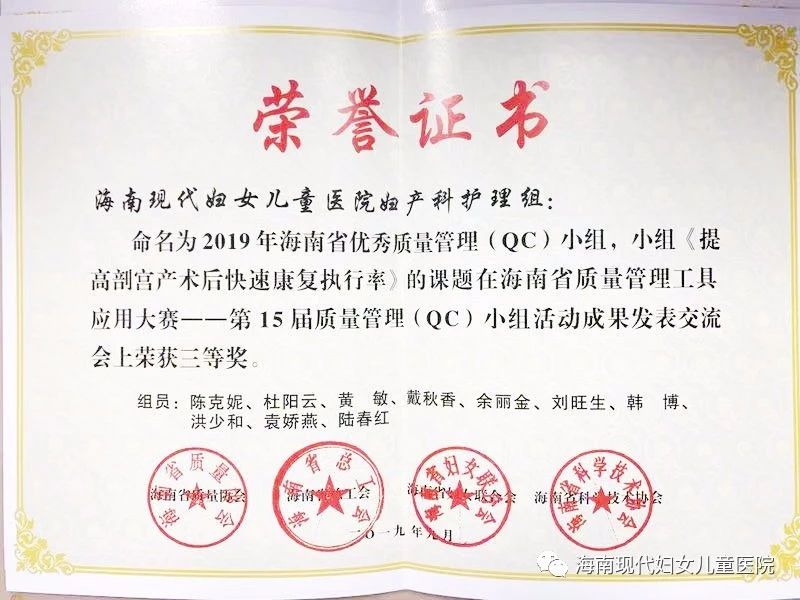 荣誉证书
海南现代妇女儿童医院妇产科护理组：
命名为2019年海南省优秀质量管理（QC）小组，小组《提
高剖宫产术后快速康复执行率》的课题在海南省质量管理工具
应用大赛——第15届质量管理（QC）小组活动成果发表交流
会上荣获三等奖。
组员：陈克妮、杜阳云、黄　敏、戴秋香、余丽金、刘旺生、韩　博、
洪少和、袁娇燕、陆春红
海南省质量协会
海南省总工会
海南省妇女联合会
海南省科学技术协会
海南省质量协会
海南省总工会
海南省妇女联合会
海南省科学技术协会
二〇一九年九月
海南现代妇女儿童医院